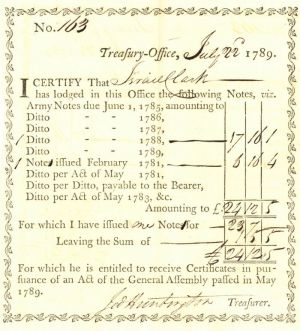 No. 163
Treasury-Office, July 22 1789.
I CERTIFY That Israel Clark
has lodged in this Office the following Notes, viz.
Army Notes due June 1, 1785, amounting to
Ditto - - 1786,
Ditto - - 1787,
1 Ditto - - 1788, 17 16 1
Ditto - - 1789,
1 Note issued February 1781, 6 16 4
Ditto per Act of May 1781,
Ditto per Ditto, payable to the Bearer,
Ditto per Act of May 1783, &c.
Amounting to £ 24 12 5
For which I have issued one Note for
Leaving the Sum of
£ 24 12 5
For which he is entitled to receive Certificates in pur-
suance of an Act of the General Assembly passed in May
1789.
Jed Huntington Treasurer.